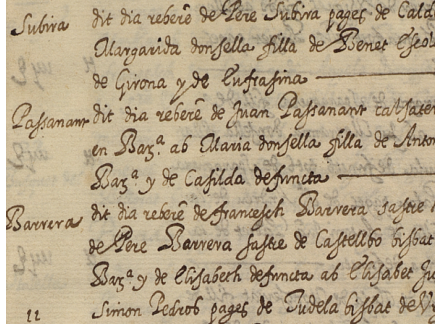 Subira dit dia reberẽ de Pere Subira pages de Cald
Margarida donsella filla de Benet
de Girona y de Eufrasina
Passanant dit dia reberẽ de Juan Passanant calsater
en Barᵃ. ab Maria donsella filla de Anton
Barᵃ. y de Casilda defuncta
Barrera dit dia reberẽ de francesch Barrera sastre
de Pere Barrera sastre de Castellbo bisbat
Barᵃ. y de Elisabeth defuncta ab Elisabet
Simon Pedros pages de Tudela bisbat de